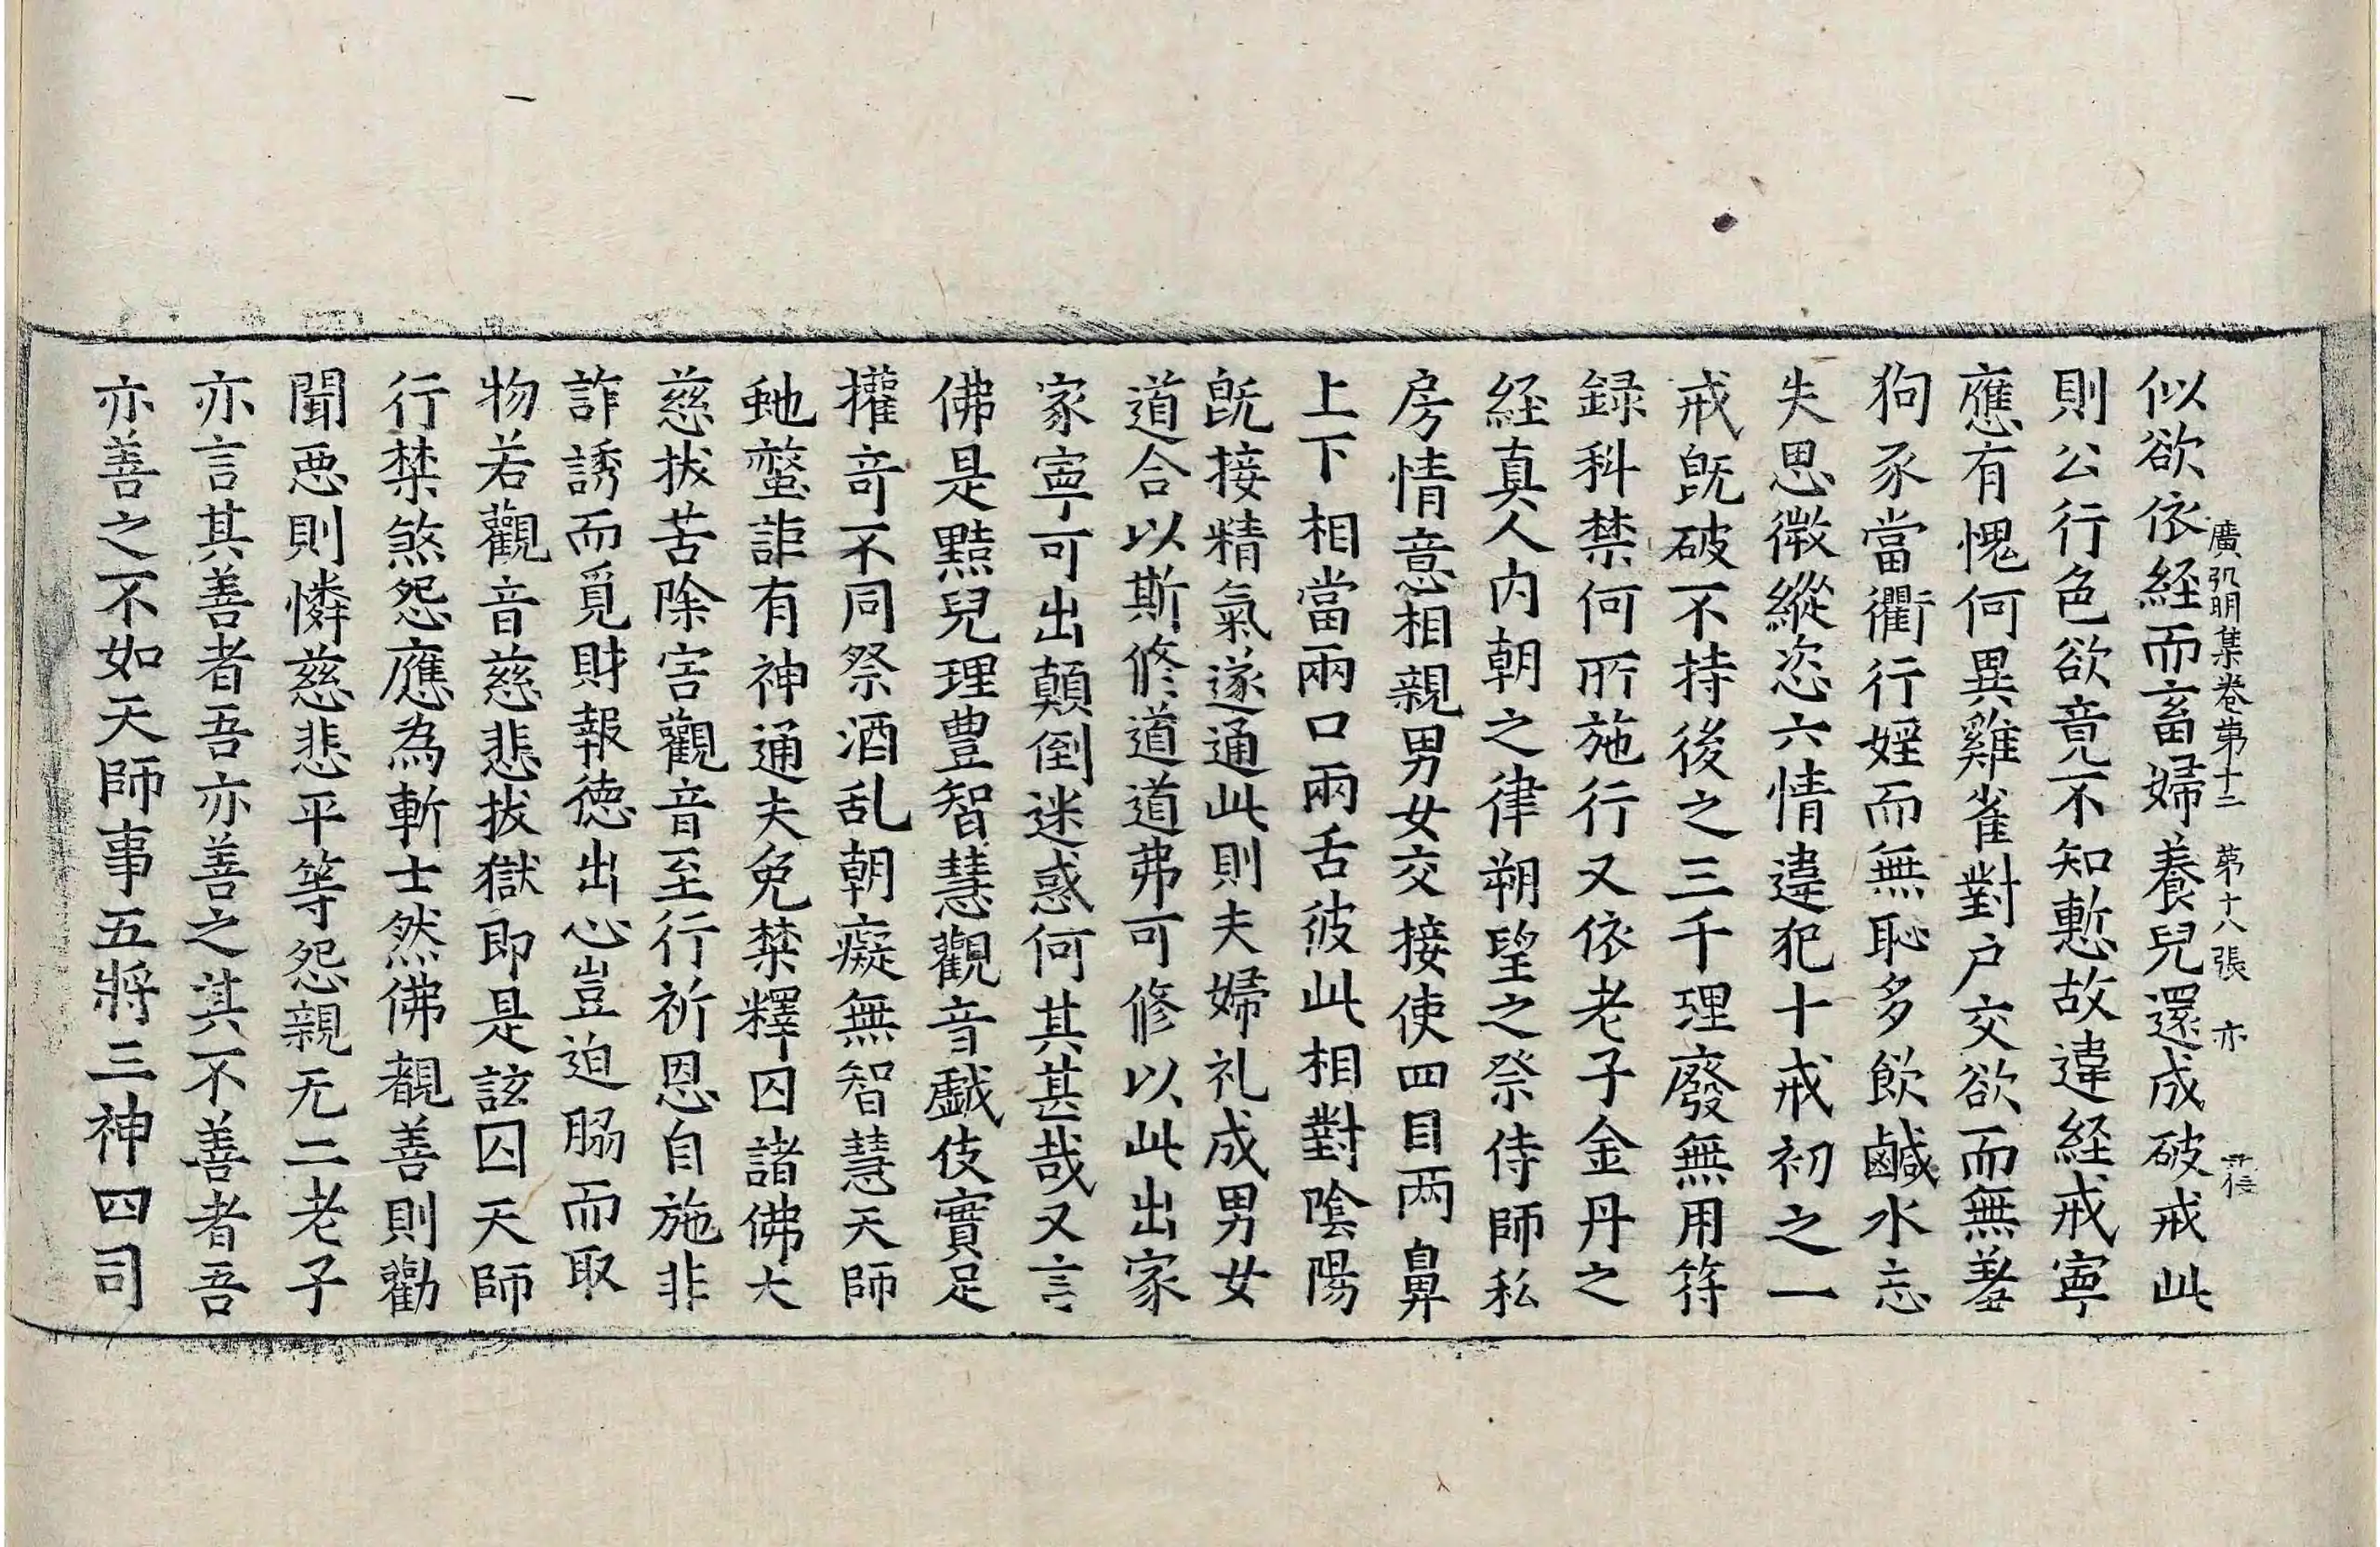 廣弘明集卷第十二　第十八張　亦
似欲依経而畜婦養兒還成破戒此
則公行色欲竟不知慙故違経戒寧
應有愧何異雞雀對戶交欲而無羞
狗豕當衢行婬而無恥多飲鹹水忘
失思徴縱恣六情違犯十戒初之一
戒旣破不持後之三千理廢無用符
録科禁何所施行又依老子金丹之
経真人内朝之律朔望之祭侍師私
房情意相親男女交接使四目两鼻
上下相當兩口兩舌彼此相對陰陽
旣接精氣遂通此則夫婦礼成男女
道合以斯修道道弗可修以此出家
家寧可出顛倒迷惑何其甚哉又言
佛是黠兒理豊智慧觀音戯伎實足
權竒不同祭酒乱朝癡無智慧天師
虵螫詎有神通夫免禁釋囚諸佛大
慈拔苦除害觀音至行祈恩自施非
詐誘而覓財報徳出心豈迫脇而取
物若觀音慈悲拔獄即是該囚天師
行禁煞怨應為斬士然佛覩善則勸
聞恶則憐慈悲平等怨親无二老子
亦言其善者吾亦善之其不善者吾
亦善之不如天師事五將三神四司